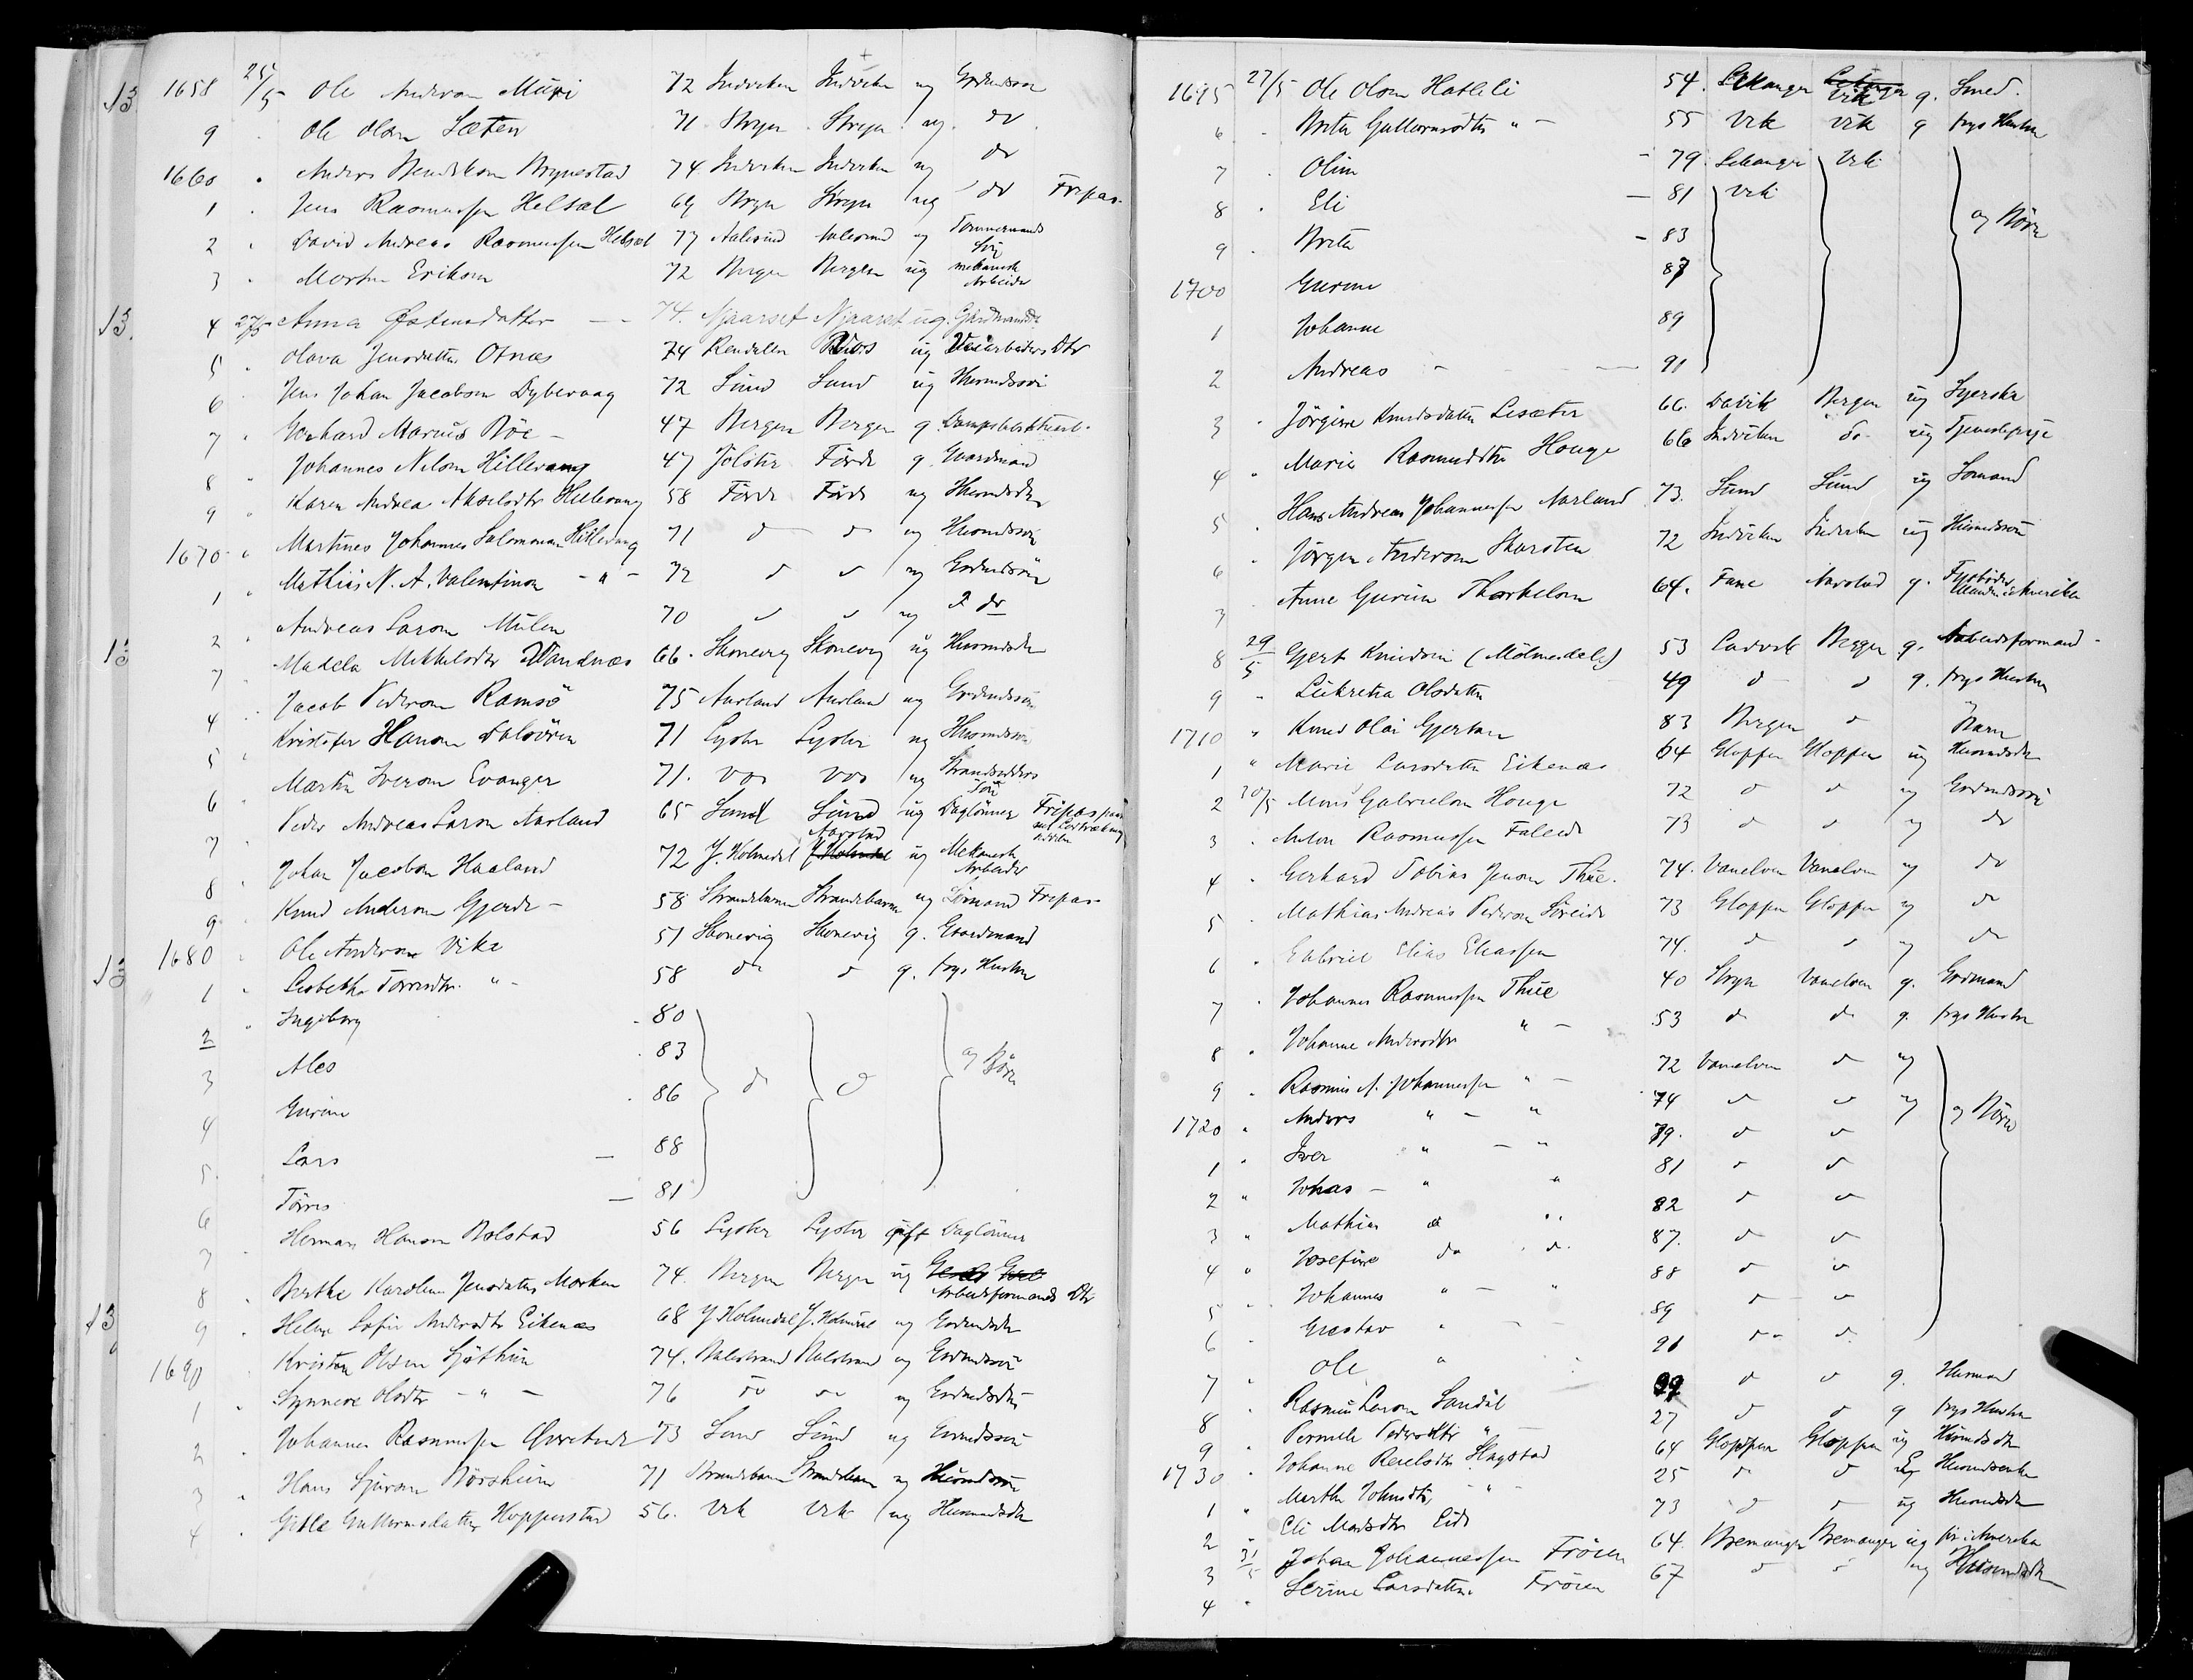 13 1658 25/5 Ole Anderson Muri 72 Indviken Indviken ug Grdmdssøn
9 Ole Olson Sæten 71 Stryn Stryn ug do
1660 Anders Bendikson Brynestad 74 Indviken Indviken ug do
1 Jens Rasmussen Helsæt 69 Stryn Stryn ug do Fripas
2 David Andreas Rasmussen Helsæt 77 Aalesund Aalesund ug Tømmermands
3 Morten Erikson 72 Bergen Bergen ug mekanisk Arbeider
13. 4 27/5 Anna Østensdatter 74. Njaarset Njaaret ug. Gårdmandsdtr
5 Olava Jensdatter Otnæs 74 Rendalen ug Dtr
6 Jens Johan Jacobsen Dybevaag 72 Sund Sund ug Husmdssøn
7 Gerhard Marius Böe 47 Bergen Bergen g.
8 Johannes Nilson Hillevang 47 Jölster Förde g. Gaardmand
9 Karen Andrea Akselsdtr Hillevang 58 Förde Förde ug Husmdsdtr
1670 Martines Johannes Salomonson Hillevang 71 d d ug Husmdssøn
1 Mathias N. A. Valentinson - " - 72 d d ug Grdmdssøn
2 Andreas Larson Mülen 70 d d ug do
13 Madela Mikkelsdtr Wandnæs 66. Skonevig Skonevig ug Husmdsdtr
4 Jacob Pederson Ramsö 75 Aurland Aurland ug Grdmdssøn
5 Kristofer Hanson Dalsören 71 Lyster Lyster ug Husmdssøn
6 Martin Iverson Evanger 71. Vos Vos ug Strandsidders Søn
7 Peder Andreas Larson Aarland 65 Sund Sund ug Daglönner Fripas
8 Johan Jacobson Haaland 72 Y. Holmedal Aarstad ug Mekanisk Arbeider
9 Knud Anderson Gjerde 58 Strandebarm Strandebarm ug Sömand Fripas
13 1680 Ole Anderson Vika 51 Skonevig Skonevig g. Gaardmand
1 Lisbetha Tørresdtr " 58 do d g. frgs Hustru
2 Ingeborg 80
3 Ales 83
4 Gurine 86 d d og Börn
5 Lars 88
6 Törres 81
7 Herman Hanson Bolstad 56 Lyster Lyster gift Daglönner
8 Berthe Karoline Jensdatter Morken 74. Bergen Bergen ug Arbeidsformands Dtr
13 9 Helene Sofie Andersdtr Eikenæs 68 Y. Holmedal Y. Holmedal ug Grdmdsdtr
1690 Kristen Olsen Sjöthun 74. Balestrand Balestrand ug Grdmdssøn
1 Synneve Olsdtr - " - 76 do do ug Grdmdsdtr
2 Johannes Rasmussen 73 Sund Sund ug Grdmdssøn
3 Hans Sjurson Börsheim 71 Strandebarm Strandebarm ug Husmdssøn
4 Gitle Guttormsdatter Hopperstad 56. Vik Vik ug Husmandsdtr
1695 27/5 Ole Olsen Hatleli 54. Lekanger Vik g. Smed.
6 Brita Guttormsdtr " - 55 Vik Vik g frgs Hustru
7 Oline 79 Lekanger Vik
8 Eli 81 Vik
9 Brita 83 og Börn
1700 Gurine 87
1 Johanne 89
2 Andreas 91
3 Jörgine Knudsdatter Lisæter 66. Davik Bergen ug Syerske
4 Marie Rasmusdtr Houge 66 Indviken do ug Tjenestepige
5 Hans Andreas Johannessen Aarland 73. Sund Sund ug Sømand
6 Jörgen Anderson Skarsten 72 Indviken Indviken ug Husmdssøn
Anne Gurine Thorkelson 64. Fane Aarstad g. Amerika
8 29/5 Gjert Knudsen (Mölmesdal) 53 Ladvik Bergen g. Arbeidsformand
9 Lükretia Olsdatter 49 d d g. frgs Hustru
1710 Knud Olai Gjertsen 83 Bergen d Barn
1 Marie Larsdatter Eikenæs 64 Gloppen Gloppen ug Husmdsdtr
2 30/5 Mons Gabrielsen Houge 72 d d ug Grdmdssøn
3 Anton Rasmussen Faleide 73 d d ug do
4 Gerhard Tobias Jenson Thue 74. Vanelven Vanelven ug do
5 Mathias Andreas Pederson Söreide 73 Gloppen Gloppen ug do
6 Gabriel Elias Eliassen 74. d d ug do
7 Johannes Rasmussen Thue 40 Stryn Vanelven g. Grdmand
8 Johanne Andersdtr " - 53 d d g. frgs Hustru
9 Rasmus A. Johannessen " - 72 Vanelven d ug
1720 Anders " - " 74 d d ug og Börn
1 Iver " - " 79. d d
2 Johas - " " 81 d d
3 Mathias d " 82 d d
4 Josefine do d. 87. d d
5 Johannes " - " 88 d d
6 Gustav " - 89 d d
7 Ole " 91 d d
8 Rasmus Larson Sandal d d g. Husmand
9 Pernele Pedersdtr " - 27 d d g frgs Hustru
1730 Johanne Reielsdtr Skogstad 64 Gloppen Gloppen ug Husmdsdtr
1 Marthe Johnsdtr - " - 25 d d Husmdsenke
2 Eli Madsdtr Eide 73 d d ug Husmdsdtr
3 31/5 Johan Johannessen Fröien 64. Bremanger Bremanger ug för i Amerika
4 Serine Larsdatter Fröien 67 d d ug Husmdsdtr